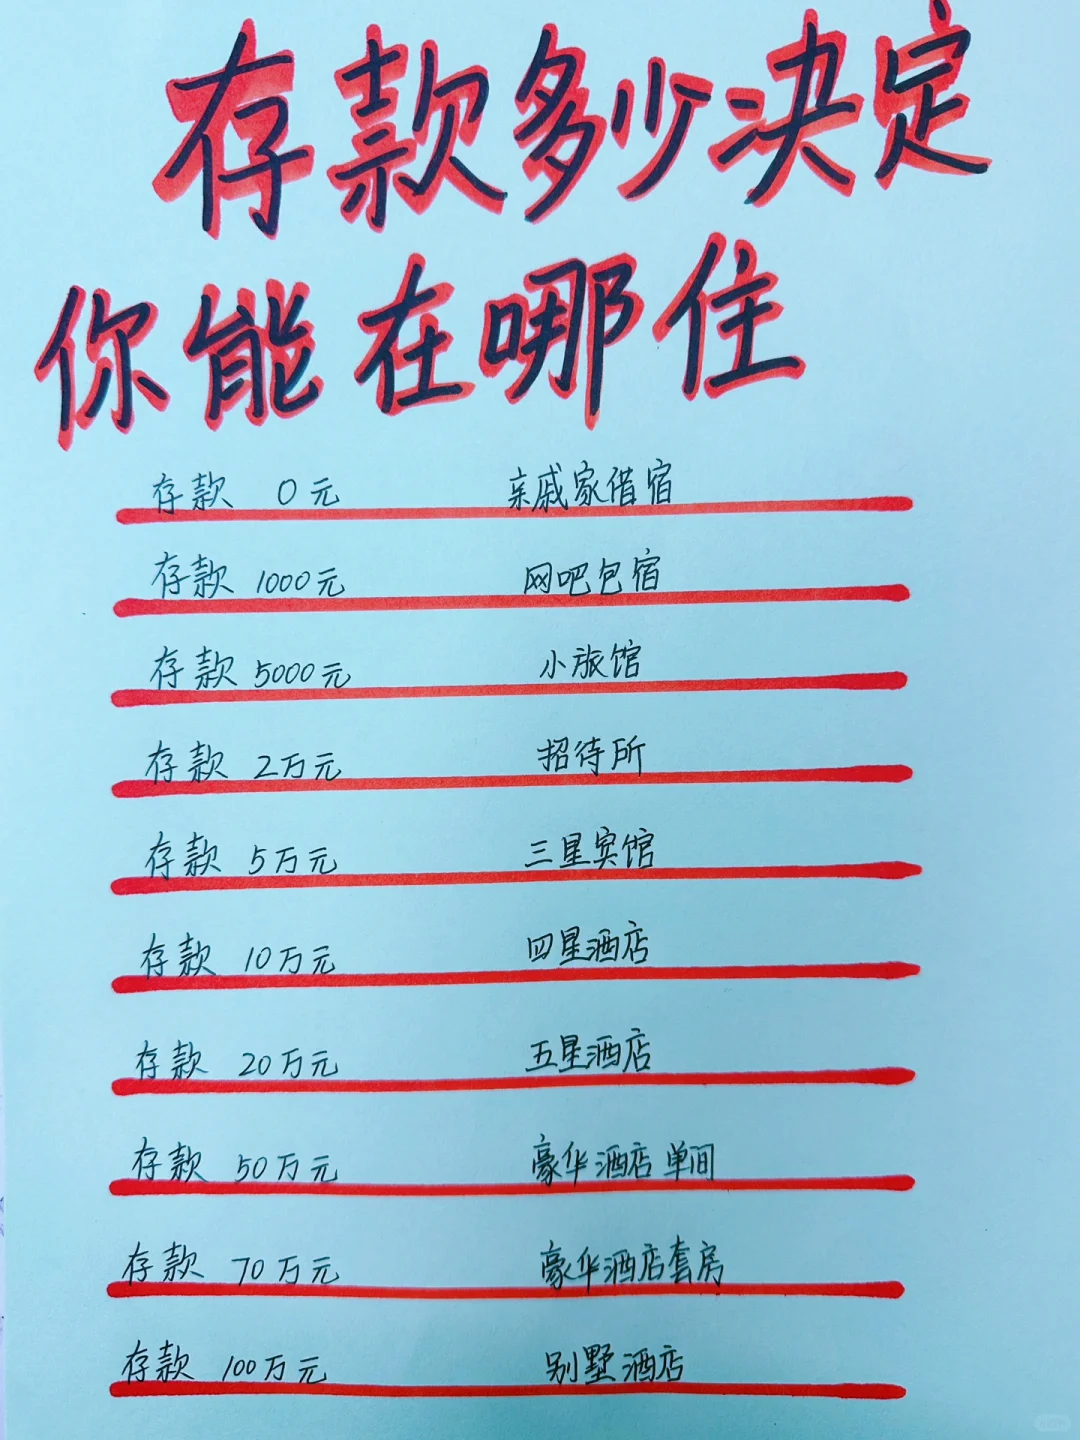 存款多少决定
你能在哪住
存款 0元 亲戚家借宿
存款 1000元 网吧包宿
存款 5000元 小旅馆
存款 2万元 招待所
存款 5万元 三星宾馆
存款 10万元 四星酒店
存款 20万元 五星酒店
存款 50万元 豪华酒店单间
存款 70万元 豪华酒店套房
存款 100万元 别墅酒店